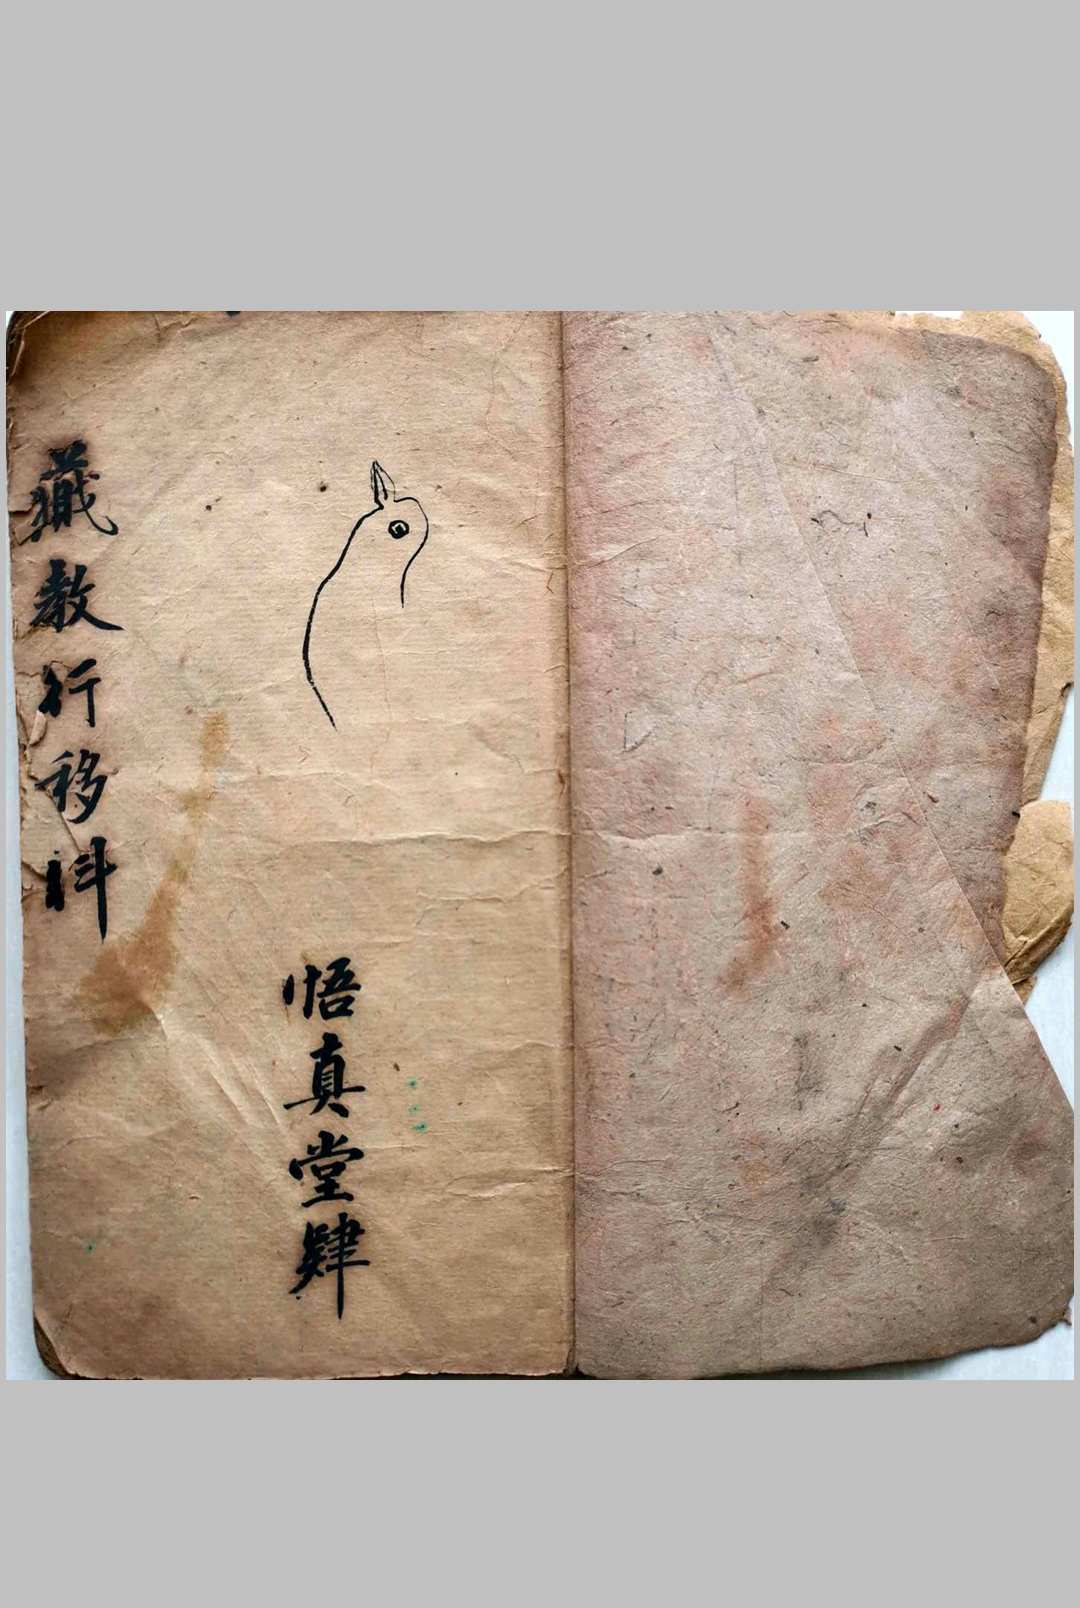 藏教行移科
悟真堂肄